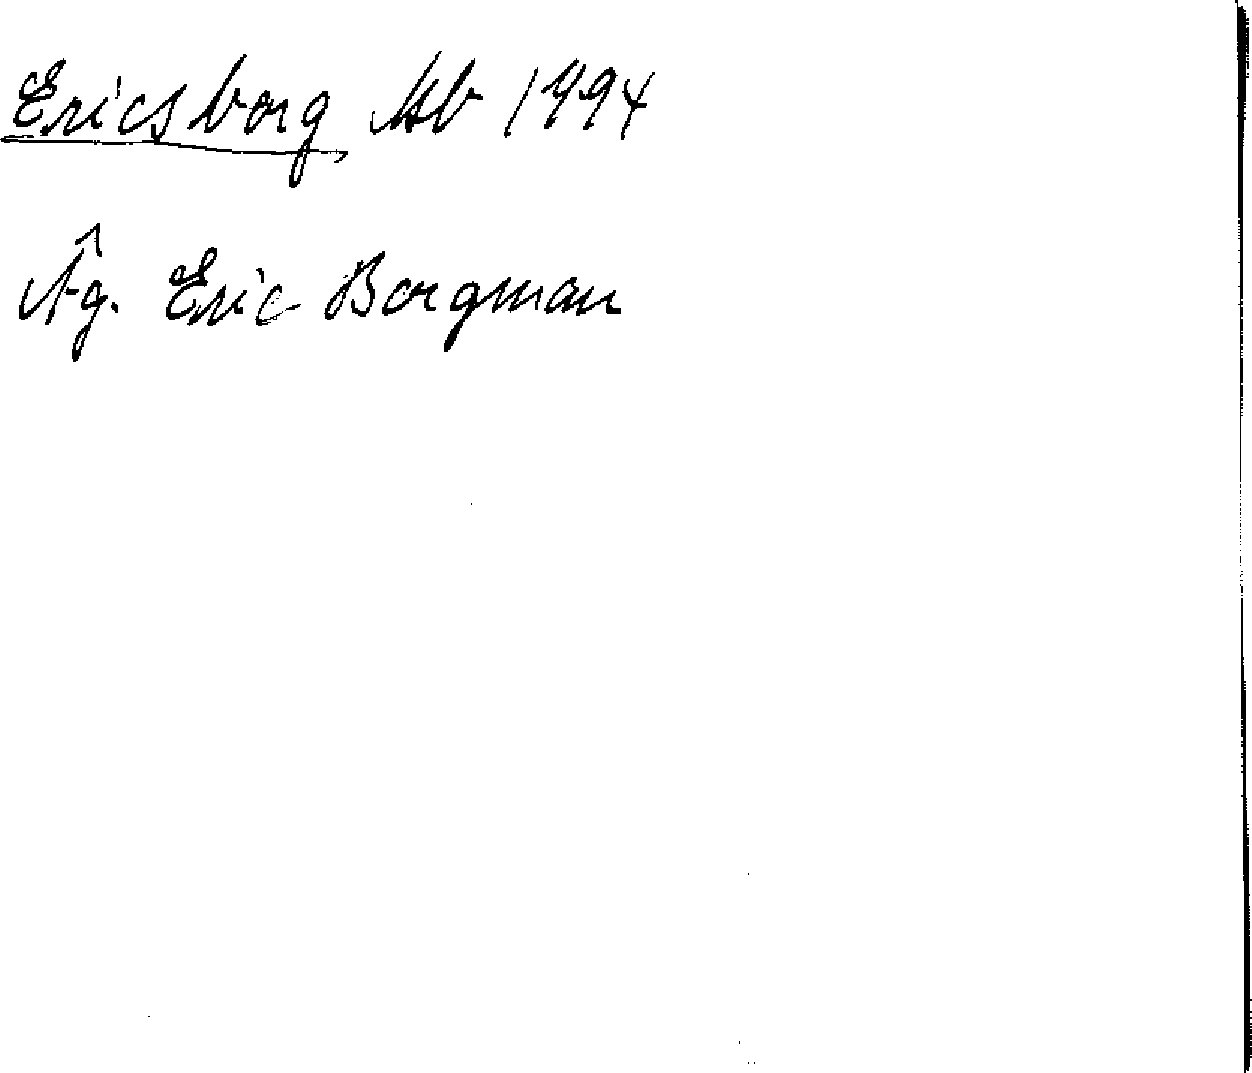 Ericsborg Mb 1994
Äg. Eric Borgman